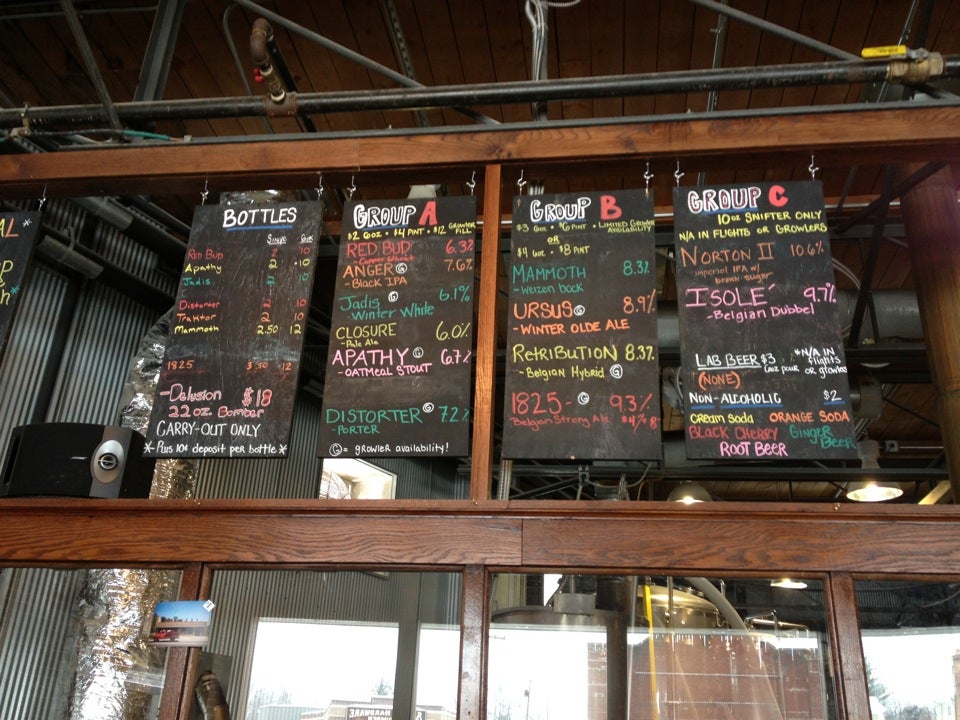 AL *
P
h *
BOTTLES
SINGLE 6PK
RED BUD 2 10
Apathy 2 10
Jadis 2 10
Distorter 2 10
Traktor 2 10
Mammoth 2.50 12
1825 3.50 12
-Delusion $18
22 oz Bomber
CARRY-OUT ONLY
*Plus 10¢ deposit per bottle*
GROUP A
$2 6oz • $4 PINT • $12 GROWLER FILL
RED BUD 6.3%
-Copper Wheat
ANGER G 7.6%
-BLACK IPA
Jadis G 6.1%
-Winter White
CLOSURE 6.0%
-Pale Ale
APATHY G 6.7%
-OATMEAL STOUT
DISTORTER G 7.2%
-PORTER
G = growler availability!
GROUP B
$3 6oz • $6 PINT • LIMITED GROWLER AVAILABILITY
OR
$4 6oz • $8 PINT
MAMMOTH 8.3%
-Weizen bock
URSUS G 8.9%
-WINTER OLDE ALE
RETRIBUTION 8.3%
-Belgian Hybrid G
1825 - G 9.3%
Belgian Strong Ale $4/$8
GROUP C
10oz SNIFTER ONLY
N/A IN FLIGHTS OR GROWLERS
NORTON II 10.6%
imperial IPA w/
brown sugar
ISOLÉ 9.7%
-Belgian Dubbel
LAB BEER $3 6oz pour *N/A IN flights or growlers
(NONE)
NON-ALCOHOLIC $2
CREAM SODA ORANGE SODA
BLACK CHERRY GINGER BEER
ROOT BEER
BOSE
HARDWARE